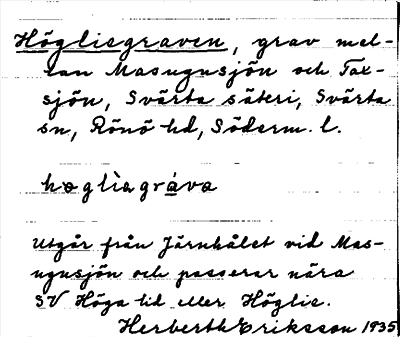 Högliegraven, grav mel-
lan Masugnsjön och Tax-
sjön, Svärta säteri, Svärta
sn, Rönö hd, Söderm. l.
høglìagráva
Utgår från Järnhålet vid Mas-
ugnsjön och passerar nära
SV Höga lid eller Höglie.
Herberth Eriksson 1935